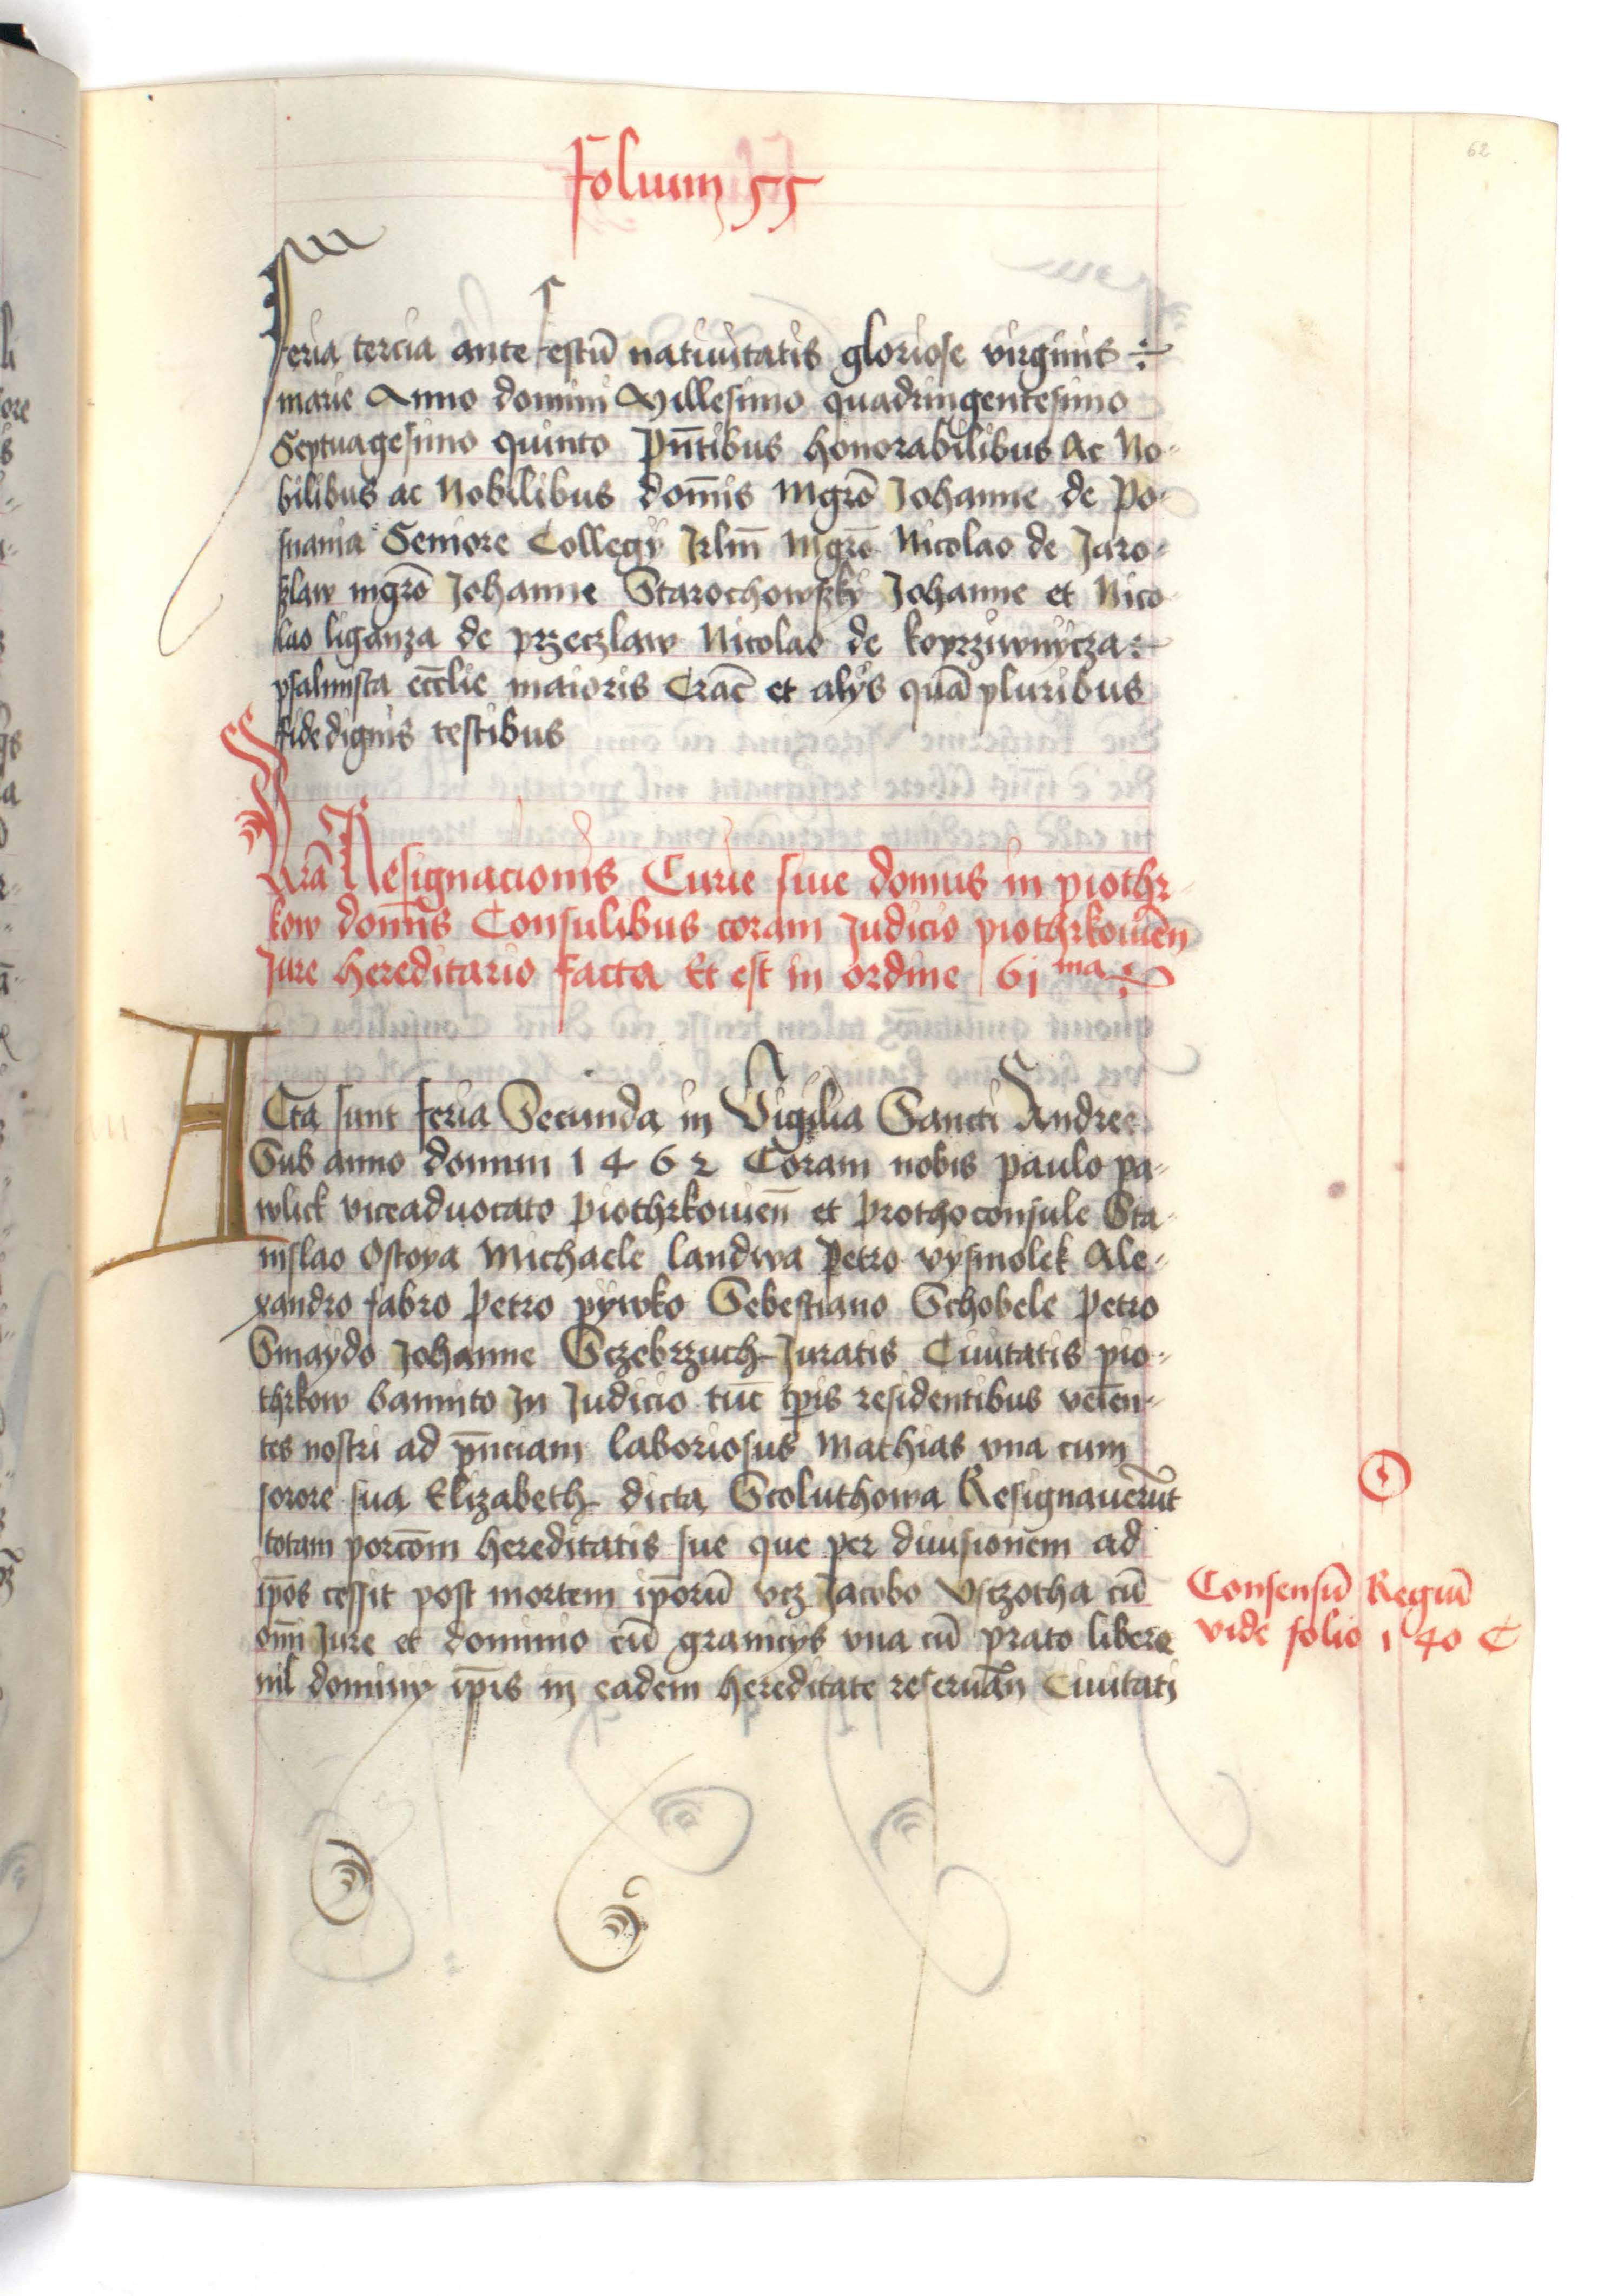 folium 55
62
feria tercia ante festū natiuitatis gloriose virginis
marie Anno domini Millesimo quadringentesimo
Septuagesimo quinto pn̄tibus honorabilibus Ac No-
bilibus ac Nobilibus dom̄is Mgrō Johanne de Po-
snania Seniore Collegÿ Jrlm̄ Mgrō Nicolao de Jaro-
slaw mgrō Johanne Starochowsky Johanne et Nico-
lao liganza de przeczlaw Nicolao de koprziwnycza
psalmista ecclīe maioris Crac̄ et alÿs quā pluribus
fidedignis testibus
Lr̄a Resignacionis Curie siue domus in piothr-
kow domīs Consulibus coram Judicio piothrkouien̄
Jure hereditario facta Et est in ordine 61 ma
ACta sunt feria Secunda in Vigilia Sancti Andree
Sub anno domini 1462 Coram nobis paulo pa-
wlick viceaduocato piothrkouien̄ et prothoconsule Sta-
nislao Ostoya Michaele landwa Petro vysmolek Ale-
xandro fabro Petro pywko Sebestiano Schobele Petro
Smaydo Johanne Sczebrzuch Juratis Ciuitatis pio-
thrkow bannito Jn Judicio tūc tp̄is residentibus veīen-
tes nostri ad pn̄ciam laboriosus Mathias vna cum
sorore sua Elizabeth dicta Scoluthowa Resignauerūt
totam porcōm hereditatis sue que per diuisionem ad
ip̄os cessit post mortem ip̄orū vcz Jacobo Vsczotha cū
om̄i Jure et dominio cū granicÿs vna cū prato libere
nil dominÿ ip̄is in eadem hereditate reseruān Ciuitati
Consensū Regiū
vide folio 140 C